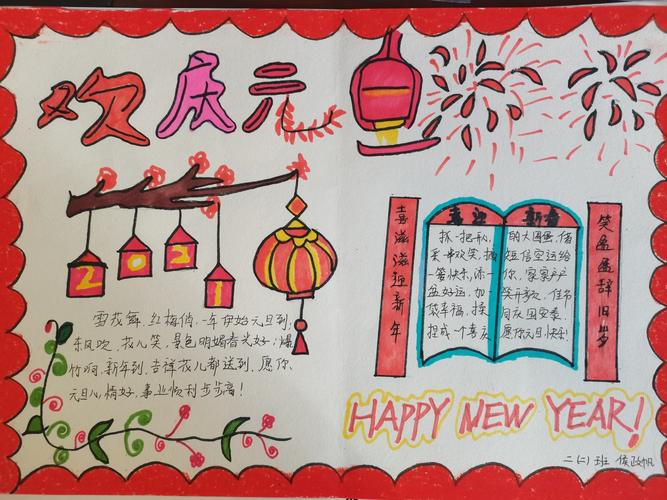 欢庆元旦
2021
雪花舞,红梅俏,一年伊始元旦到;
东风吹,花儿笑,景色明媚春光好;爆
竹响,新年到,吉祥花儿都送到,愿你
元旦心情好,事业顺利步步高!
喜滋滋迎新年
喜迎 新春
抓一把开心,
采一串欢笑,
一签快乐,添一
盆好运,加一
袋幸福,揉
捏成一个喜庆
的大圆蛋,借
短信空运给
你,家家户户
笑开颜,佳节
同庆国安泰,
愿你元旦快乐!
笑盈盈辞旧岁
HAPPY NEW YEAR!
二(二)班 侯政帆